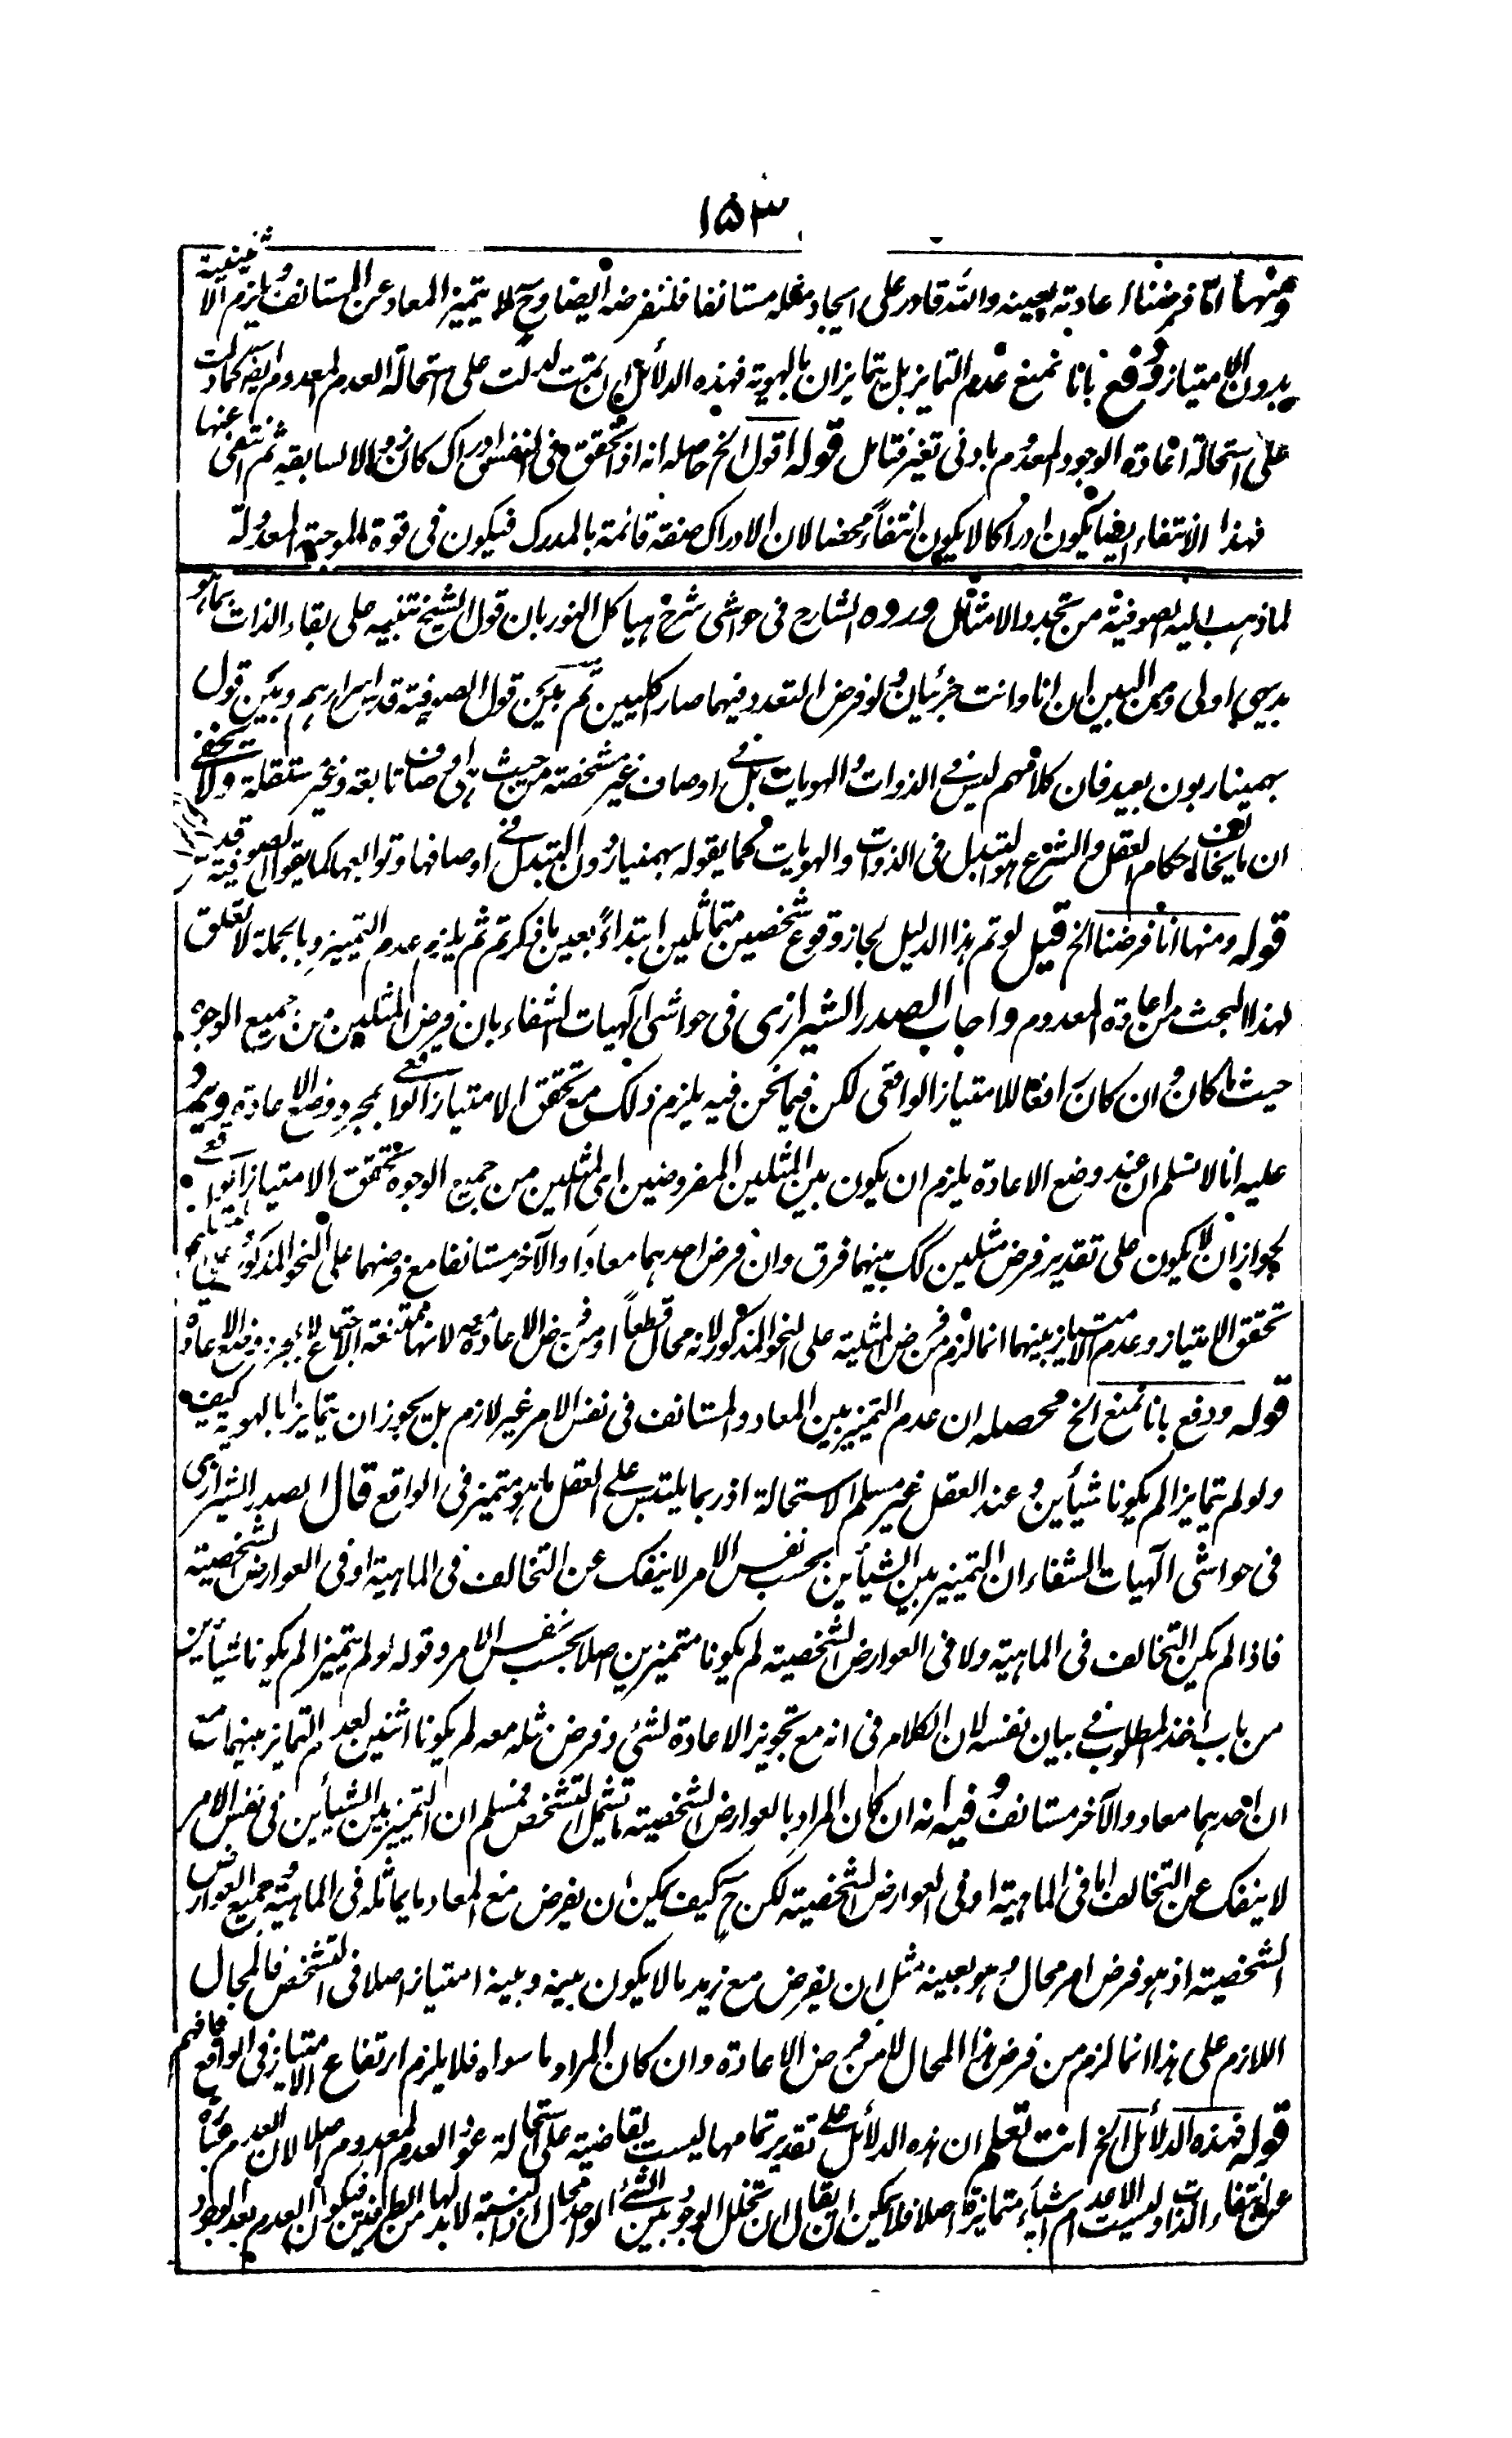 ١٥٣
ومنها انا فرضنا اعادته بعينه والله قادر على ايجاد مثله مستانفا فلنفرضه ايضا وح لا يتميز المعاد عن المستانف ويلزم الاثنينية
بدون الامتياز ودفع بانا نمنع عدم التمايز بل يتمايزان بالهوية فهذه الدلائل ان تمت لدلت على استحالة العدم المعدوم ايضه كما دلت
على استحالة اعادة الوجود المعدوم بادنى تغير فتامل قوله اقول الخ حاصله انه اذا تحقق فى النفس ادراك كان زوالا لسابقه ثم انتفى عنها
فهذا الانتفاء ايضا يكون ادراكا لا يكون انتفاءً محضا لان الادراك صفة قائمة بالمدرك فيكون فى قوة الموجبة المعدولة
لما ذهب اليه الصوفية من تجدد الامثال ورده الشارح فى حواشى شرح هياكل النور بان قول الشيخ تنبيه على بقاء الذات بما هو
بديهي اولى ومن البين ان انا وانت جزئيان ولو فرض التعدد فيهما صار كليين ثم بين قول الصوفية قدس اسرارهم وبين قول
بهمنيار بون بعيد فان كلامهم ليس في الذوات والهويات بل في اوصاف غير مشخصة من حيث هى اوصاف تابعة وغير مستقلة ولا يخفى
ان ما يخالف احكام العقل والشرع هو التبدل فى الذوات والهويات كما يقوله بهمنيار دون التبدل في اوصافها وتوابعها كما يقول الصوفية
قوله ومنها انا فرضنا الخ قيل لو تم هذا الدليل لجاز وقوع شخصين متماثلين ابتداءً بعين ما ذكرتم ثم يلزم عدم التميز وبالجملة لا تعلق
لهذا البحث من اعادة المعدوم واجاب الصدر الشيرازى فى حواشى الهيات الشفاء بان فرض المثلين من جميع الوجوه
حيث ما كان وان كان رافعا للامتياز الواقعى لكن فيما نحن فيه يلزم ذلك مع تحقق الامتياز الواقعي بمجرد وضع الاعادة ويرد
عليه انا لا نسلم ان عند وضع الاعادة يلزم ان يكون بين المثلين المفروضين اى المثلين من جميع الوجوه تحقق الامتياز الواقعي
لجواز ان لا يكون على تقدير فرض مثلين كك بينهما فرق وان فرض احدهما معادا والآخر مستانفا مع فرضهما على النحو المذكور
تحقق الامتياز وعدم الامتياز بينهما انما لزم من فرض المثلية على النحو المذكور لانه محال قطعاً او من فرض الاعادة معه لانها ممتنعة الاجتماع لا بمجرد وضع الاعادة
قوله ودفع بانا نمنع الخ محصله ان عدم التميز بين المعاد والمستانف فى نفس الامر غير لازم بل يجوز ان يتمايزا بالهوية كيف
ولو لم يتمايزا لم يكونا شيأين وعند العقل غير مسلم الاستحالة اذ ربما يلتبس على العقل ما هو متميز فى الواقع قال الصدر الشيرازى
فى حواشى الهيات الشفاء ان التميز بين الشيأين بحسب نفس الامر لا ينفك عن التخالف فى الماهية او فى العوارض الشخصية
فاذا لم يكن التخالف فى الماهية ولا فى العوارض الشخصية لم يكونا متميزين اصلا بحسب نفس الامر وقوله لو لم يتميزا لم يكونا شيأين
من باب اخذ المطلوب في بيان نفسه لان الكلام فى انه مع تجويز الاعادة لشئ وفرض مثله معه لم يكونا اثنين لعدم التمايز بينهما مع
ان احدهما معاد والآخر مستانف وفيه انه ان كان المراد بالعوارض الشخصية ما تشمل التشخص فمسلم ان التميز بين الشيأين فى نفس الامر
لا ينفك عن التخالف اما فى الماهية او فى العوارض الشخصية لكن ح كيف يمكن ان يفرض مع المعاد ما يماثله فى الماهية وجميع العوارض
الشخصية اذ هو فرض امر محال وهو بعينه مثل ان يفرض مع زيد ما لا يكون بينه وبينه امتياز اصلا فى التشخص فالمحال
اللازم على هذا انما لزم من فرض هذا المحال لا من فرض الاعادة وان كان المراد ما سواه فلا يلزم ارتفاع الامتياز فى الواقع فافهم
قوله فهذه الدلائل الخ انت تعلم ان هذه الدلائل على تقدير تمامها ليست بقاضية على استحالة عود العدم المعدوم اصلا لان العدم عبارة
عن انتفاء الذات وليست الاعدام اشياء متمايزة اصلا فلا يمكن ان يقال ان تخلل الوجود بين الشئ الواحد محال اذ النسبة لا بد لها من الطرفين فيكون العدم بعد الوجود